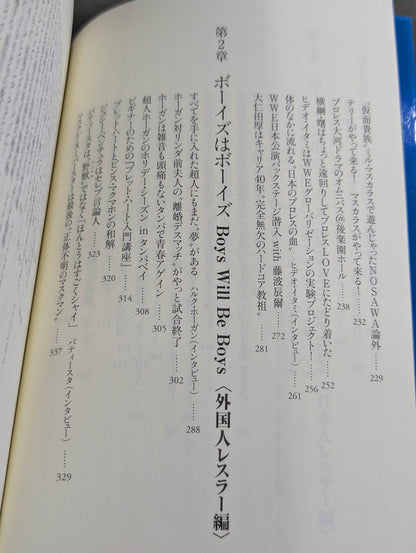 “仮面貴族”ミル・マスカラスで遊んじゃったNOSAWA論外 …… 229
テリーがやって来る!　マスカラスがやって来る! …… 232
プロレス大河ドラマのオムニバス㊙後楽園ホール …… 238
横綱・曙はちょっと遠回りしてプロレスLOVEにたどり着いた …… 252
ヒデオ・イタミはWWEグローバリゼーションの実験プロジェクト! …… 256
体のなかに流れる“日本のプロレスの血”　ヒデオ・イタミ(インタビュー) …… 261
WWE日本公演バックステージ潜入 with 藤波辰爾 …… 272
大仁田厚はキャリア40年“完全無欠のハードコア教祖” …… 281
第2章　ボーイズはボーイズ Boys Will Be Boys〈外国人レスラー編〉
すべてを手に入れた超人にもまだ“夢”がある　ハルク・ホーガン(インタビュー) …… 288
ホーガン対リンダ前夫人の“離婚デスマッチ”がやっと試合終了 …… 302
ホーガンは雑音も頭痛もないタンパで青春アゲイン …… 305
超人ホーガンのホリデー・シーズン in タンパベイ …… 308
ビギナーのための「ブレット・ハート入門講座」 …… 314
ブレット・ハートとビンス・マクマホンの和解 …… 320
ジェシー・ベンチュラはセレブ言論人 …… 323
バティースタは“野獣”ではなく「ほんとうはすごくシャイ」　バティースタ(インタビュー) …… 329
マスクド・スーパースターは最後の“正体不明のマスクマン” …… 337